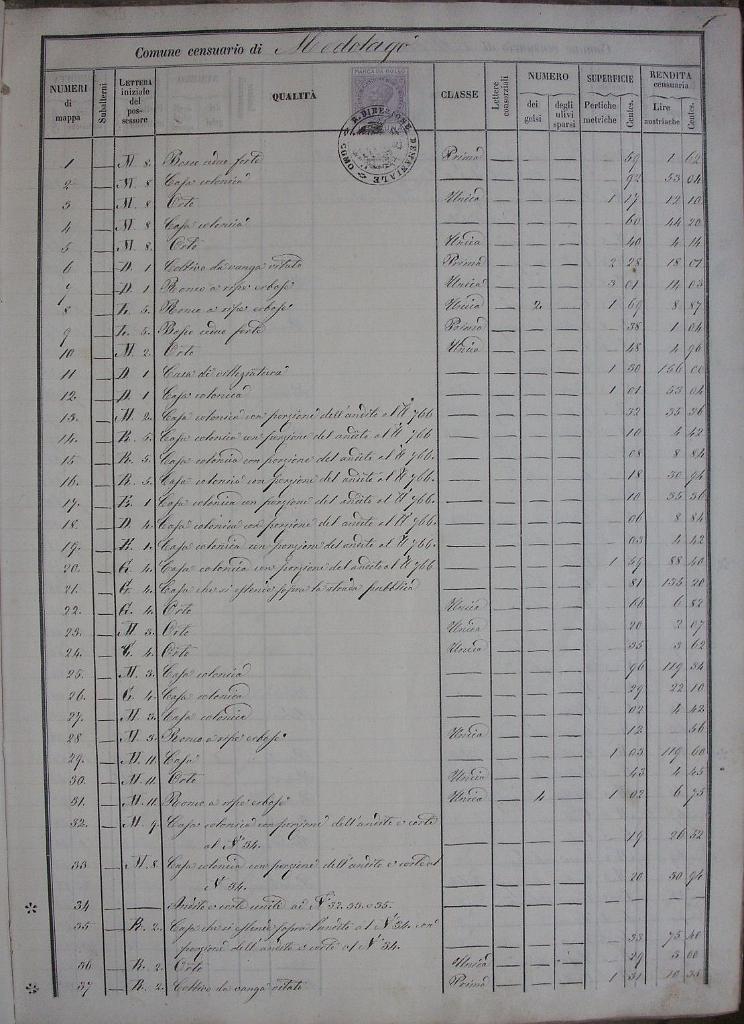 1
Comune censuario di Medolago
NUMERI di mappa | Subalterni | LETTERA iniziale del possessore | QUALITÀ | CLASSE | Lettere consorziali | NUMERO dei gelsi | degli ulivi sparsi | SUPERFICIE Pertiche metriche | Centes. | RENDITA censuaria Lire austriache | Centes.
MARCA DA BOLLO
R. DIREZIONE DEMANIALE COMO
1 — M. 8. Bosco ceduo forte Prima — — — — 59 1 62
2 — M. 8 Casa colonica — — — — — 92 53 04
3 — M. 8 Orto Unica — — — 1 17 12 10
4 — M. 8 Casa colonica — — — — — 60 44 20
5 — M. 8. Orto Unica — — — — 40 4 14
6 — D. 1 Coltivo da vanga vitato Prima — — — 2 28 18 01
7 — D. 1 Ronco a ripe erbose Unica — — — 3 01 14 03
8 — L. 5. Ronco a ripe erbose Unica — 2 — 1 69 8 87
9 — L. 5. Bosco ceduo forte Prima — — — — 38 1 04
10 — M. 2. Orto Unica — — — — 48 4 96
11 — D. 1 Casa di villeggiatura — — — — 1 50 156 00
12 — D. 1 Casa colonica — — — — 1 01 53 04
13. — M. 2. Casa colonica con porzione dell'andito al N 766 — — — — — 32 35 36
14. — R. 5. Casa colonica con porzione del andito al N 766 — — — — — 10 4 42
15 — R. 5. Casa colonica con porzione del andito al N 766. — — — — — 08 8 84
16. — R. 5. Casa colonica con porzione del andito al N 766. — — — — — 18 30 94
17. — 1 Casa colonica con porzione del andito al N 766. — — — — — 10 35 36
18. — D. 4. Casa colonica con porzione del andito al N 766. — — — — — 06 8 84
19. — 1. Casa colonica con porzione del andito al N 766. — — — — — 03 4 42
20. — G. 4. Casa colonica con porzione del andito al N 766 — — — — 1 59 88 40
21. — G. 4. Casa che si estende sopra la strada pubblica — — — — — 81 135 20
22. — G. 4. Orto Unica — — — — 66 6 82
23. — M. 3. Orto Unica — — — — 20 2 07
24. — 4. Orto Unica — — — — 35 3 62
25. — M. 3. Casa colonica — — — — — 96 119 34
26. — G. 4. Casa colonica — — — — — 29 22 10
27. — M. 3. Casa colonica — — — — — 02 4 42
28 — M. 3. Ronco a ripe erbose Unica — — — — 12 — 56
29. — M. 11. Casa — — — — 1 03 119 60
30. — M. 11. Orto Unica — — — — 43 4 45
31. — M. 11. Ronco a ripe erbose Unica — 4 — 1 02 6 75
32. — M. 9. Casa colonica con porzione dell'andito e corte
al N° 34. — — — — — 19 26 52
33 — M. 8. Casa colonica con porzione dell'andito e corte al
N° 34. — — — — — 20 30 94
34 — — Andito e corte uniti ai N° 32. 33. e 35. — — — — — — — —
35 — R. 2. Casa che si estende sopra l'andito al N° 34. con
porzione dell'andito e corte al N° 34. — — — — — 33 75 40
36 — R. 2. Orto Unica — — — — 29 3 00
37 — R. 2. Coltivo da vanga vitato Prima — — — 1 31 10 35